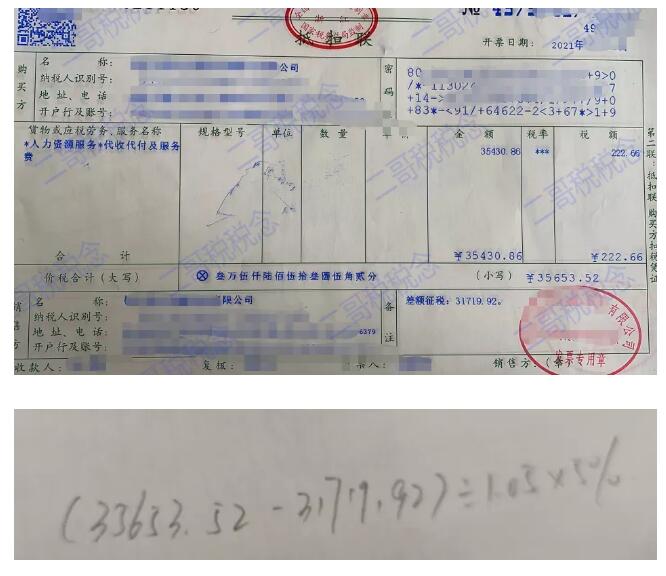 抵扣联
开票日期: 2021年
购买方
名 称: 公司
纳税人识别号:
地 址、电 话
开户行及账号:
密码
+9>0
+14->
+83*-<91/+64622-2<3+67*>1+9
货物或应税劳务、服务名称 规格型号 单位 数 量 金 额 税率 税 额
*人力资源服务*代收代付及服务 35430.86 *** 222.66
费
合 计 ¥35430.86 ¥222.66
价税合计(大写) ⊗ 叁万伍仟陆佰伍拾叁圆伍角贰分 (小写) ¥35653.52
销售方
名 称: 有限公司
纳税人识别号:
地 址、电话: 6379
开户行及账号:
备注
差额征税: 31719.92。
有限公司
发票专用章
收款人: 复核: 销售方:(章)
第二联:抵扣联 购买方扣税凭证
二哥税税念
(35653.52 - 31719.92) ÷ 1.05 × 5%